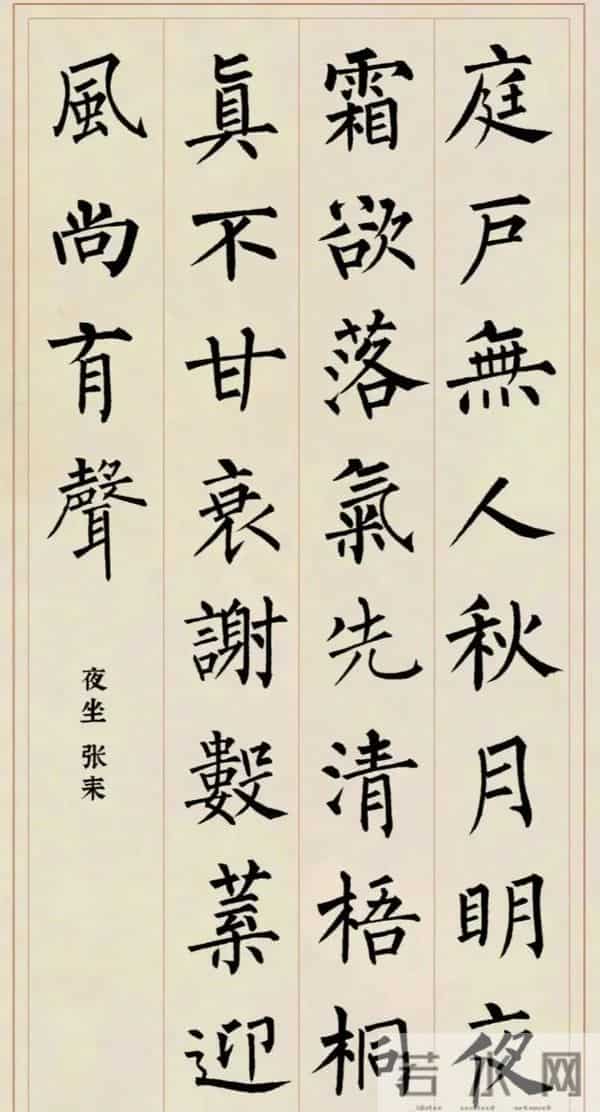 庭戶無人秋月明夜
霜欲落氣先清梧桐
眞不甘衰謝數葉迎
風尚有聲
夜坐 张耒
若水网